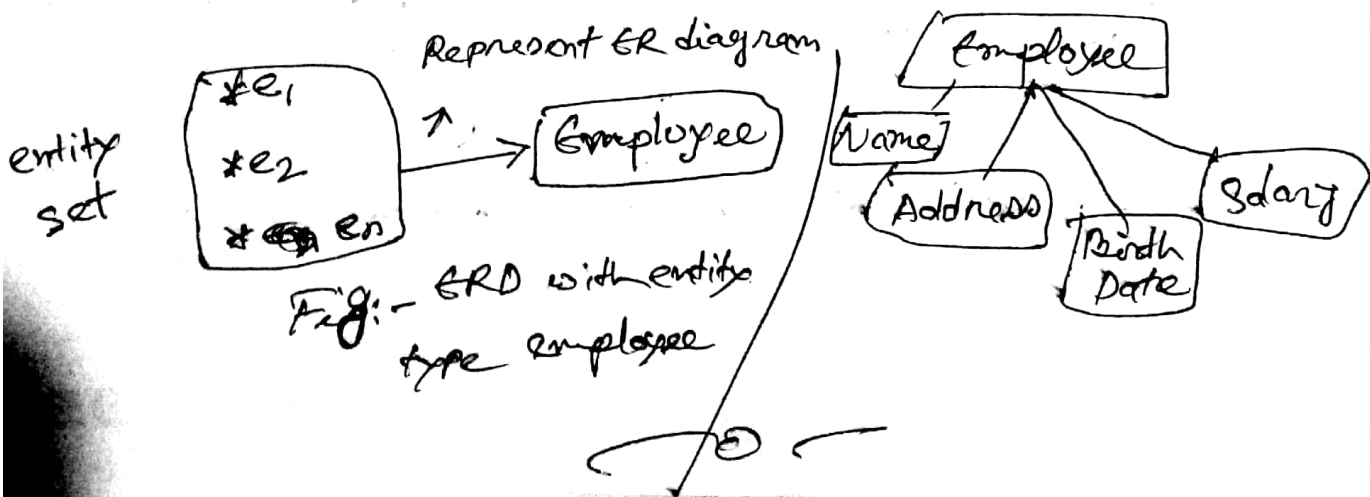 Represent ER diagram
entity
set
*e1
*e2
* en
Employee
Fig:- ERD with entity
type employee
Employee
Name
Address
Birth
Date
Salary